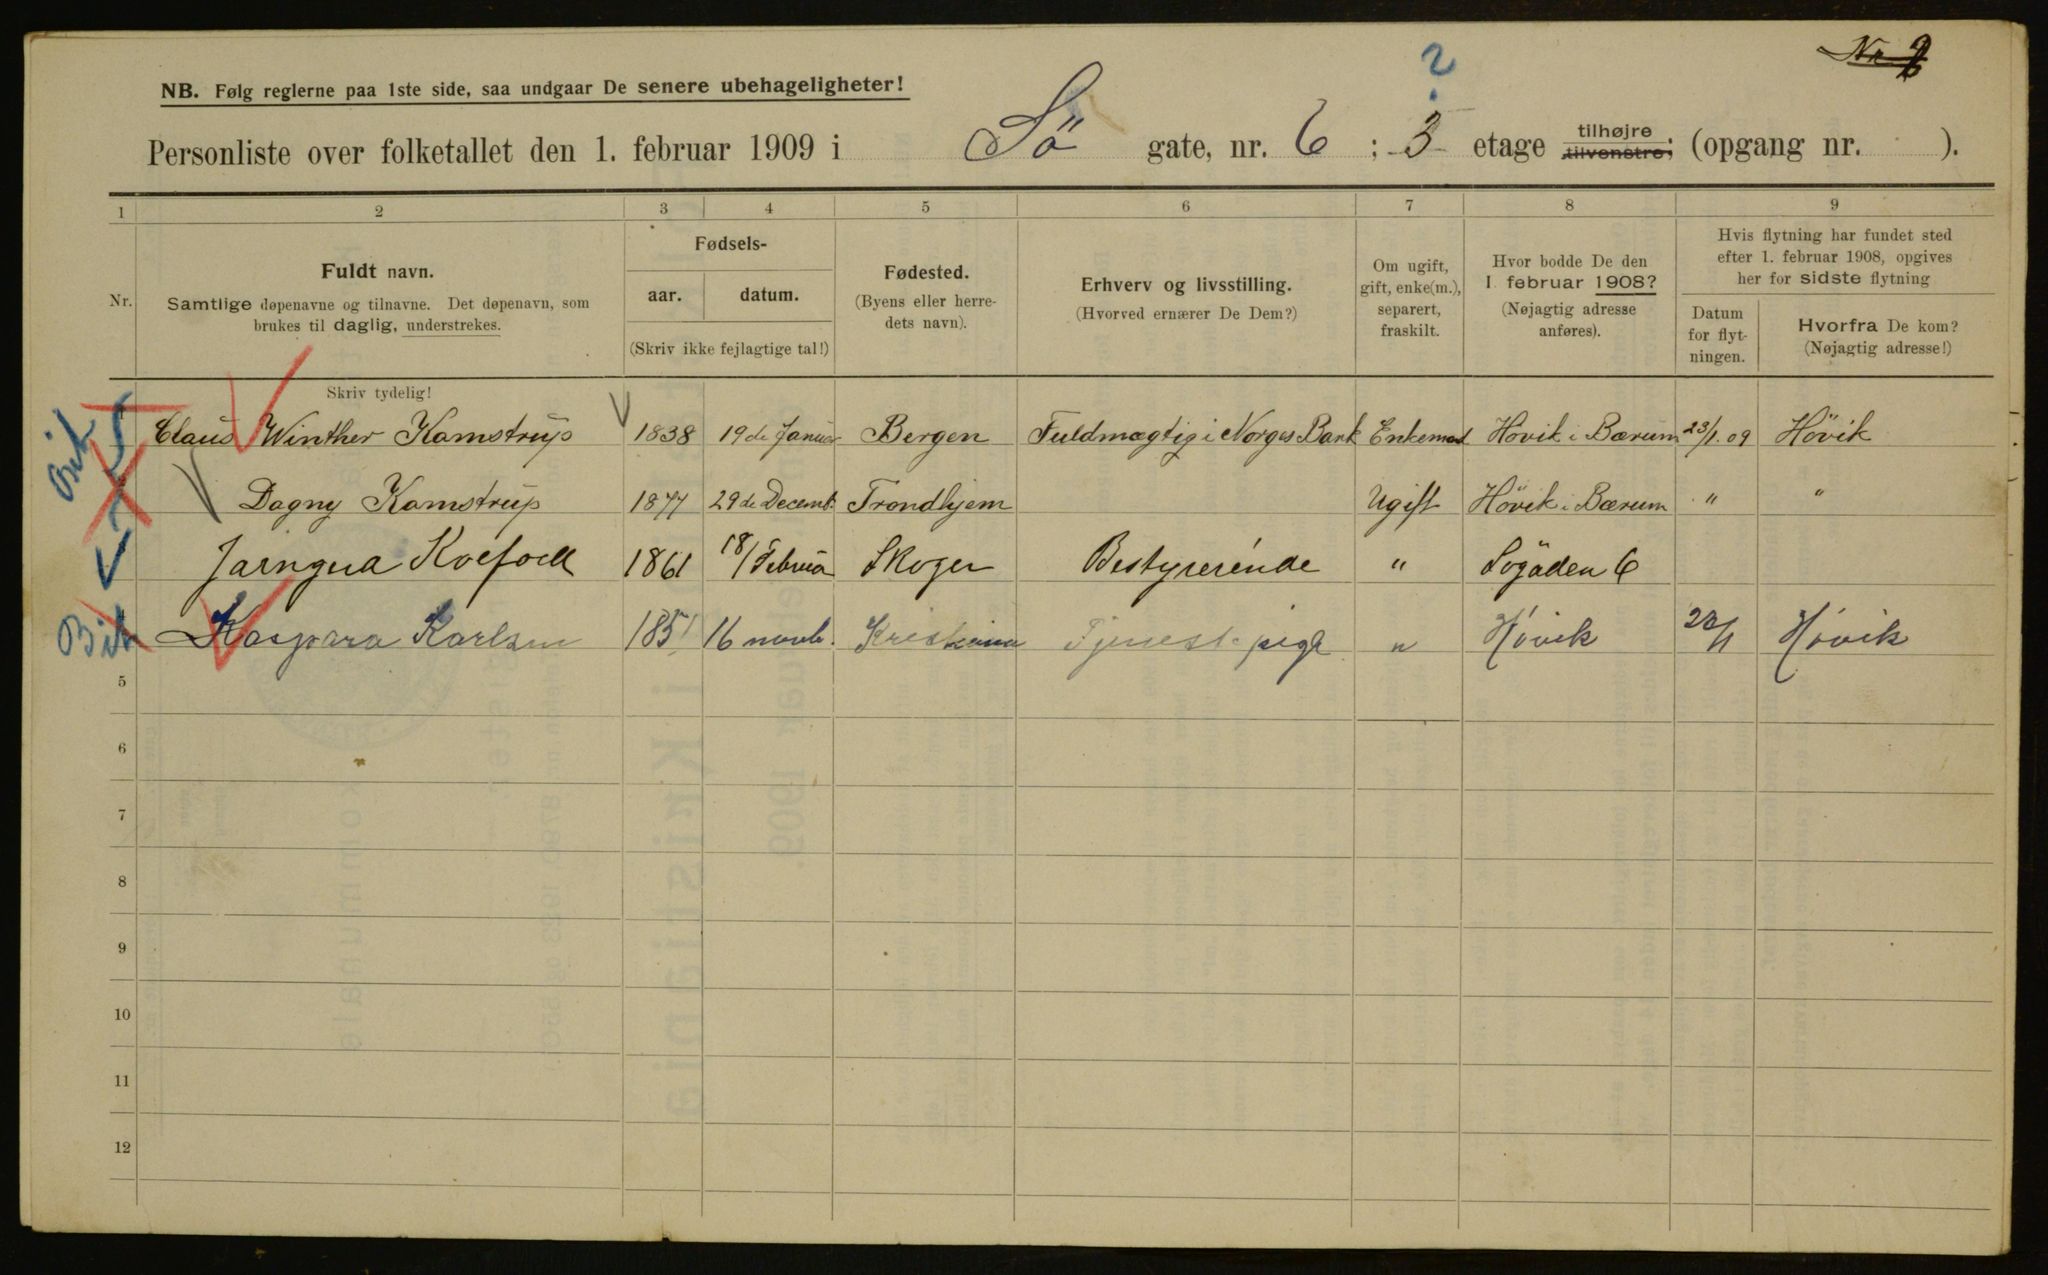 Nr.
2
NB. Følg reglerne paa 1ste side, saa undgaar De senere ubehageligheter!
Personliste over folketallet den 1. februar 1909 i Sö gate, nr. 6 ; 3 etage tilhøjre tilvenstre; (opgang nr. ).
1 2 3 4 5 6 7 8 9
Nr.
Fuldt navn.
Samtlige døpenavne og tilnavne. Det døpenavn, som
brukes til daglig, understrekes.
Skriv tydelig!
Fødsels-
aar. datum.
(Skriv ikke fejlagtige tal!)
Fødested.
(Byens eller herre-
dets navn).
Erhverv og livsstilling.
(Hvorved ernærer De Dem?)
Om ugift,
gift, enke(m.),
separert,
fraskilt.
Hvor bodde De den
1 februar 1908?
(Nøjagtig adresse
anføres).
Hvis flytning har fundet sted
efter 1. februar 1908, opgives
her for sidste flytning
Datum
for flyt-
ningen.
Hvorfra De kom?
(Nøjagtig adresse!)
Claus Winther Kamstrup 1838 19de Januar Bergen Fuldmægtig i Norges Bank Enkemand Hövik i Bærum 23/1.09 Hövik
Dagny Kamstrup 1877 29de Decemb. Trondhjem Ugift Hövik i Bærum " "
Koefoed 1861 18/Februa Skoger Bestyrerinde " Sögaden 6
Bit Kaspara Karlsen 1851 16 novb. Kristiania Tjenestepige " Hövik 23/1 Hövik
5
6
7
8
9
10
11
12